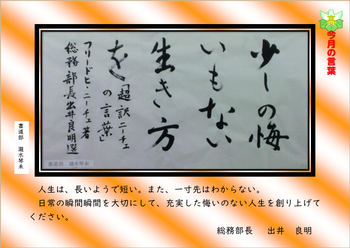 今月の言葉
少しの悔
いもない
生き方
を
「超訳ニーチェ
の言葉」
フリードヒ・ニーチェ著
総務部長出井良明選
書道部
人生は、長いようで短い。また、一寸先はわからない。
日常の瞬間瞬間を大切にして、充実した悔いのない人生を創り上げて
ください。
総務部長 出井 良明